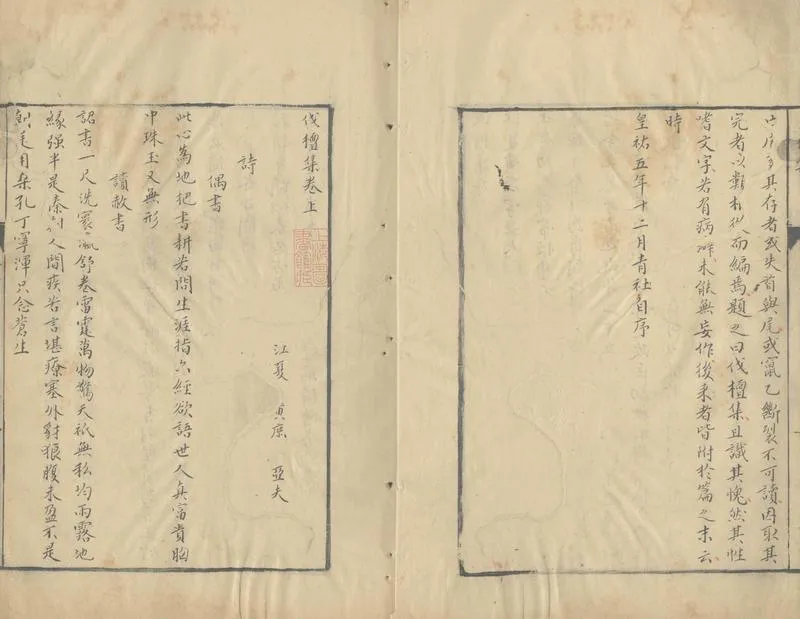 其存者或失首與尾或竄乙斷裂不可讀因取其
完者以類相從而編焉題之曰伐檀集且識其愧然其性
嗜文字若有病癖未能無妄作後來者皆附於篇之末云
時
皇祐五年十二月青社自序
伐檀集卷上
江夏 黃庶 亞夫
詩
偶書
此心為地把書耕若問生涯指六經欲語世人真富貴胸
中珠玉又無形
讀赦書
詔書一尺洗寰瀛舒卷雷霆萬物驚天祇無私均雨露地
緣强半是秦人間疾苦言堪療塞外豺狼腹未盈不是
毛目朵孔丁寧渾只念蒼生
上海圖書館藏